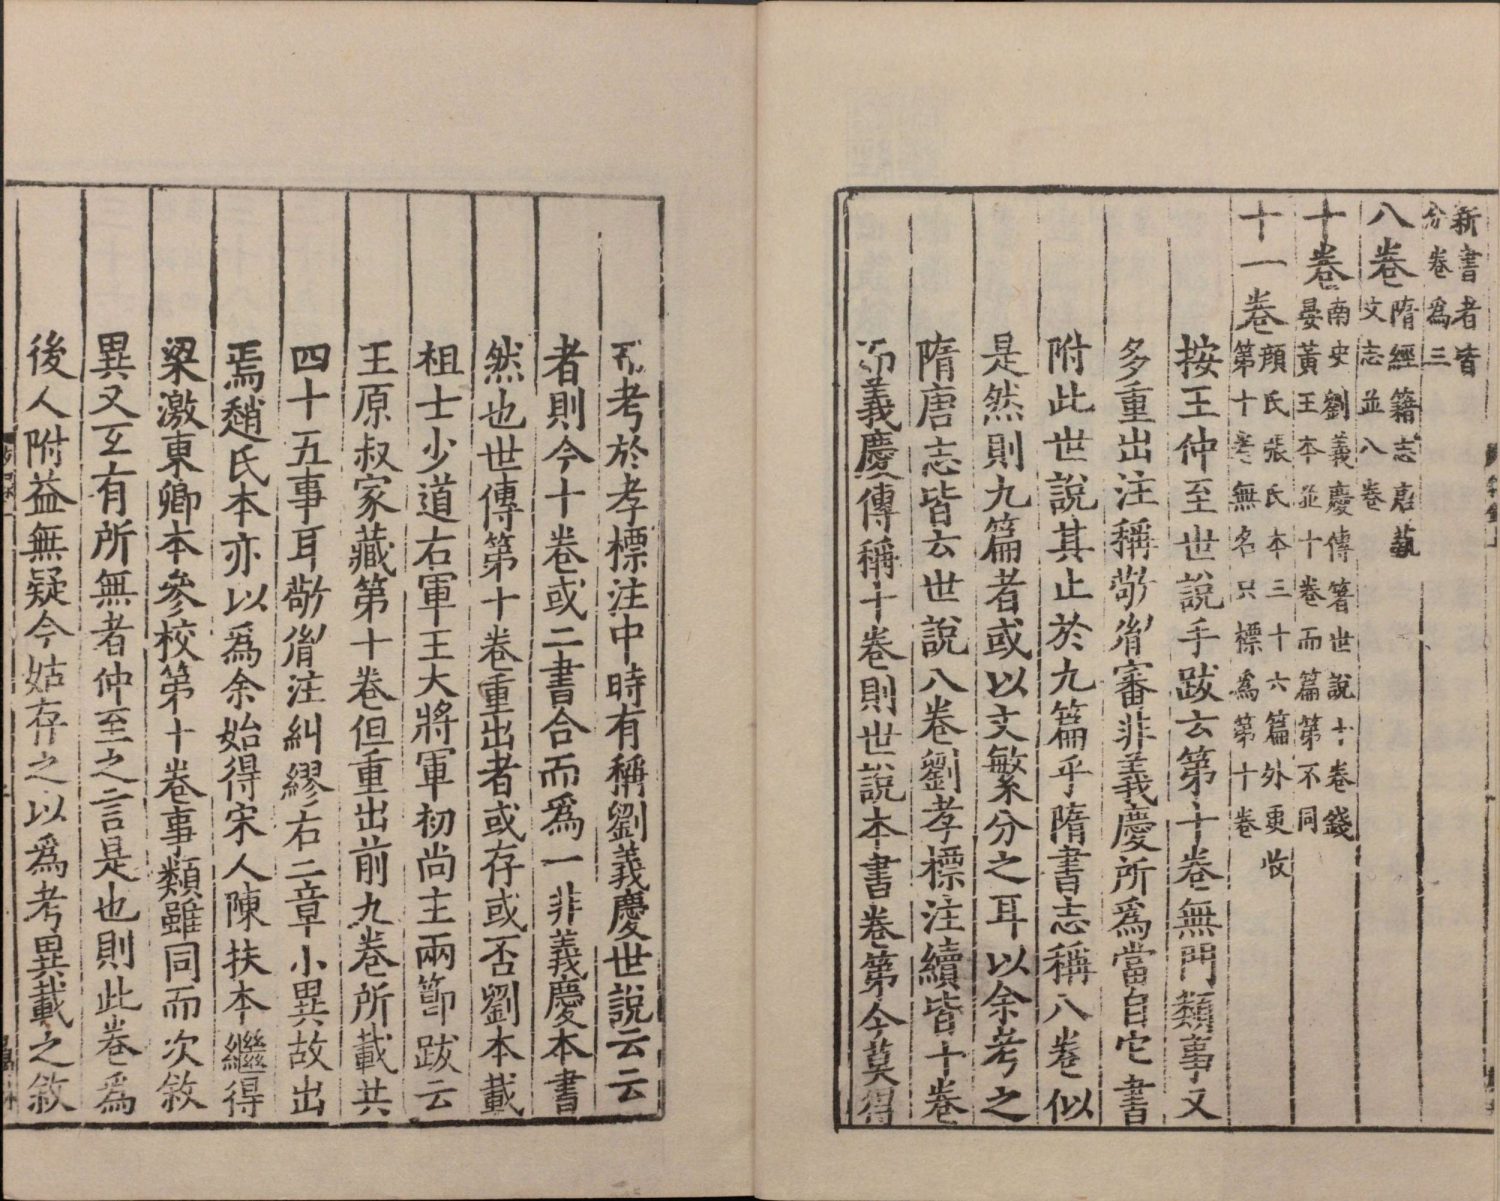 新書者皆
分卷爲三
八卷隋經籍志唐藝
文志並八卷
十卷南史劉義慶傳著世說十卷錢
晏黃王本並十卷而篇第不同
十一卷顔氏張氏本三十六篇外更收
第十卷無名只標爲第十卷
按王仲至世說手跋云第十卷無門類事又
多重出注稱敬胤審非義慶所爲當自它書
附此世說其止於九篇乎隋書志稱八卷似
是然則九篇者或以文繁分之耳以余考之
隋唐志皆云世說八卷劉孝標注續皆十卷
而義慶傳稱十卷則世說本書卷第今莫得
不考於孝標注中時有稱劉義慶世說云云
者則今十卷或二書合而爲一非義慶本書
然也世傳第十卷重出者或存或否劉本載
祖士少道右軍王大將軍初尚主兩節跋云
王原叔家藏第十卷但重出前九卷所載共
四十五事耳敬胤注糾繆右二章小異故出
焉趙氏本亦以爲余始得宋人陳扶本繼得
梁激東卿本參校第十卷事類雖同而次敘
異又互有所無者仲至之言是也則此卷爲
後人附益無疑今姑存之以爲考異載之敘